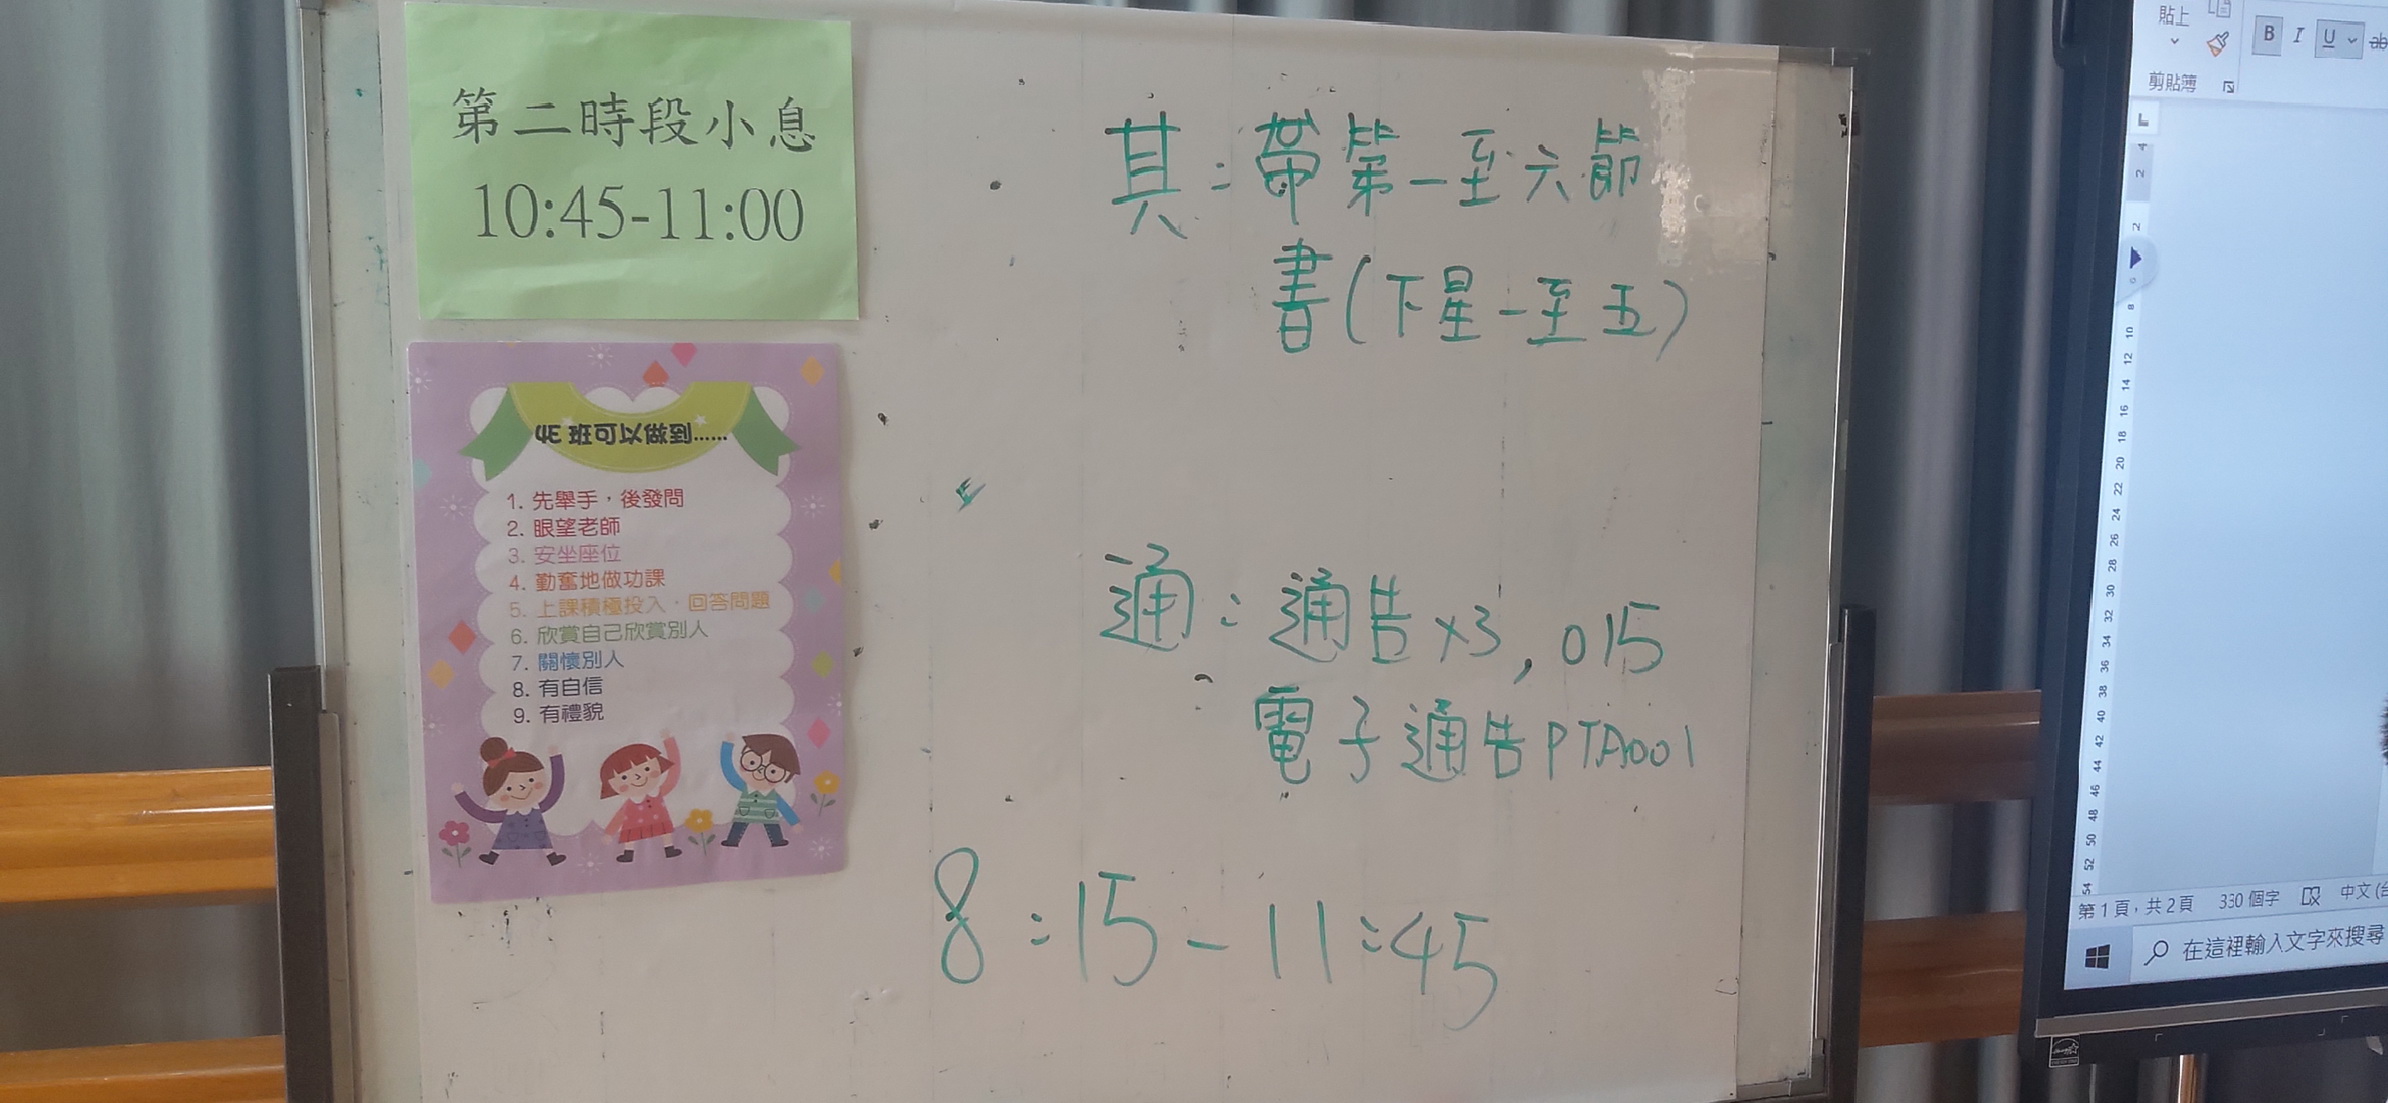 第二時段小息
10:45-11:00
4E 班可以做到......
1. 先舉手，後發問
2. 眼望老師
3. 安坐座位
4. 勤奮地做功課
5. 上課積極投入，回答問題
6. 欣賞自己欣賞別人
7. 關懷別人
8. 有自信
9. 有禮貌
其：帶第一至六節
書(下星一至五)
通：通告x3, 015
電子通告PTA001
8:15-11:45
貼上
B I U ab
剪貼簿
L
4 2 2 6 8 10 12 14 16 18 20 22 24 26 28 30 32 34 36 38 40 42 44 46 48 50 52 54
第1頁，共2頁 330 個字 中文(台
在這裡輸入文字來搜尋